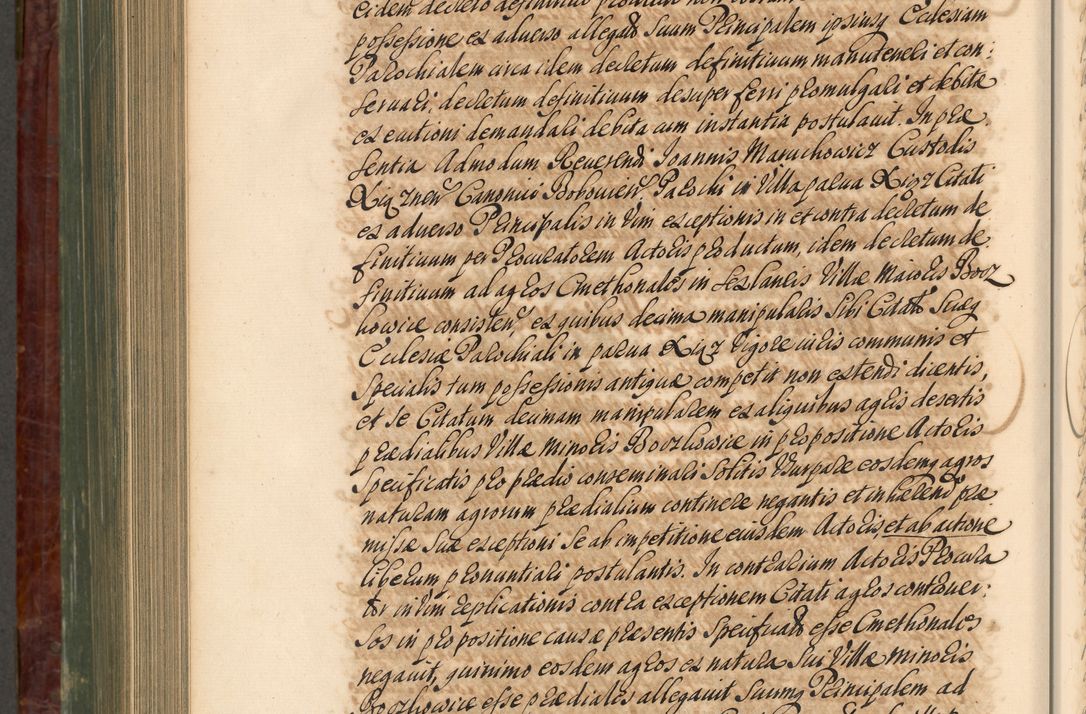 eidem decreto definitivo
possessione ex adverso allegato suum Principalem ipsiusq Ecclesiam
Parochialem circa idem decretum definitivum manuteneri et con:
servari, decretum definitivum desuper ferri promulgari et debitæ
executioni demandari debita cum instantia postulavit. In præ
sentia Admodum Reverendi Joannis Maruchowicz Custodis
Xiąznen Canonici Bobowien Parochi in Villa parva Xiąz Citati
ex adverso Principalis in vim exceptionis in et contra decretum de
finitivum per Procuratorem Actoris productum, idem decretum de
finitivum ad agros Cmethonales in sextantis Villæ Maioris Borz
howice consisten, ex quibus decima manipularis sibi Citato suæq
Ecclesiæ Parochiali in parva Xiąz vigore iuris communis et
specialis tum possessionis antiquæ competit non extendi dicentis,
et se Citatum decimam manipularem ex aliquibus agris desertis
prædialibus Villæ Minoris Borzhowice in propositione Actoris
specificatis pro prædio conseminari solitis usurpare eosdemq agros
naturam agrorum prædialium continere negantis et inhærendo præ
missæ suæ exceptioni se ab impetitione eiusdem Actoris, et ab actione
liberum pronuntiari postulantis. In contrarium Actoris Procura
tor in vim replicationis contra exceptionem Citati agros controver:
sos in propositione causæ præsentis specificatos esse Cmethonales
negavit, quinimo eosdem agros ex natura sui Villæ Minoris
Borzhowice esse prædiales allegavit suumq Principalem ad